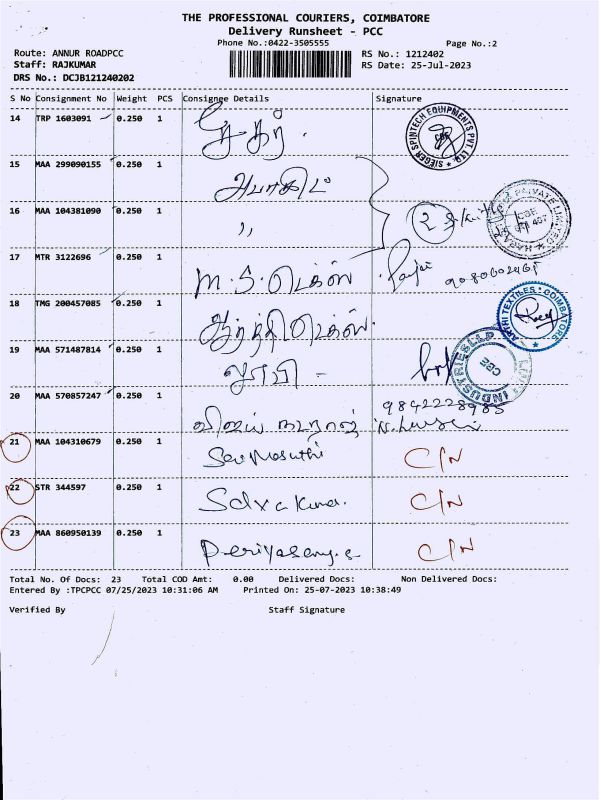 THE PROFESSIONAL COURIERS, COIMBATORE
Delivery Runsheet - PCC
Phone No.:0422-3505555
Page No.:2
Route: ANNUR ROADPCC
RS No.: 1212402
Staff: RAJKUMAR
RS Date: 25-Jul-2023
DRS No.: DCJB121240202
S No Consignment No Weight PCS Consignee Details Signature
14 TRP 1603091 0.250 1 சேகர்
SIEGER SPINTECH EQUIPMENTS PVT. LTD.
15 MAA 299090155 0.250 1
16 MAA 104381090 0.250 1 ,,
PRIVATE LIMITED
CBE
17 MTR 3122696 0.250 1 M.S. டெக்ஸ்
18 TMG 200457085 0.250 1 ஆர்த்தி டெக்ஸ்.
ARTHI TEXTILES COIMBATORE
19 MAA 571487814 0.250 1
INDUSTRIES LLP
CBE
20 MAA 570857247 0.250 1 விஜய் நடராஜ்
9842228985
21 MAA 104310679 0.250 1 C/N
22 STR 344597 0.250 1 Selvakumar. C/N
23 MAA 860950139 0.250 1 C/N
Total No. Of Docs: 23 Total COD Amt: 0.00 Delivered Docs: Non Delivered Docs:
Entered By :TPCPCC 07/25/2023 10:31:06 AM Printed On: 25-07-2023 10:38:49
Verified By Staff Signature